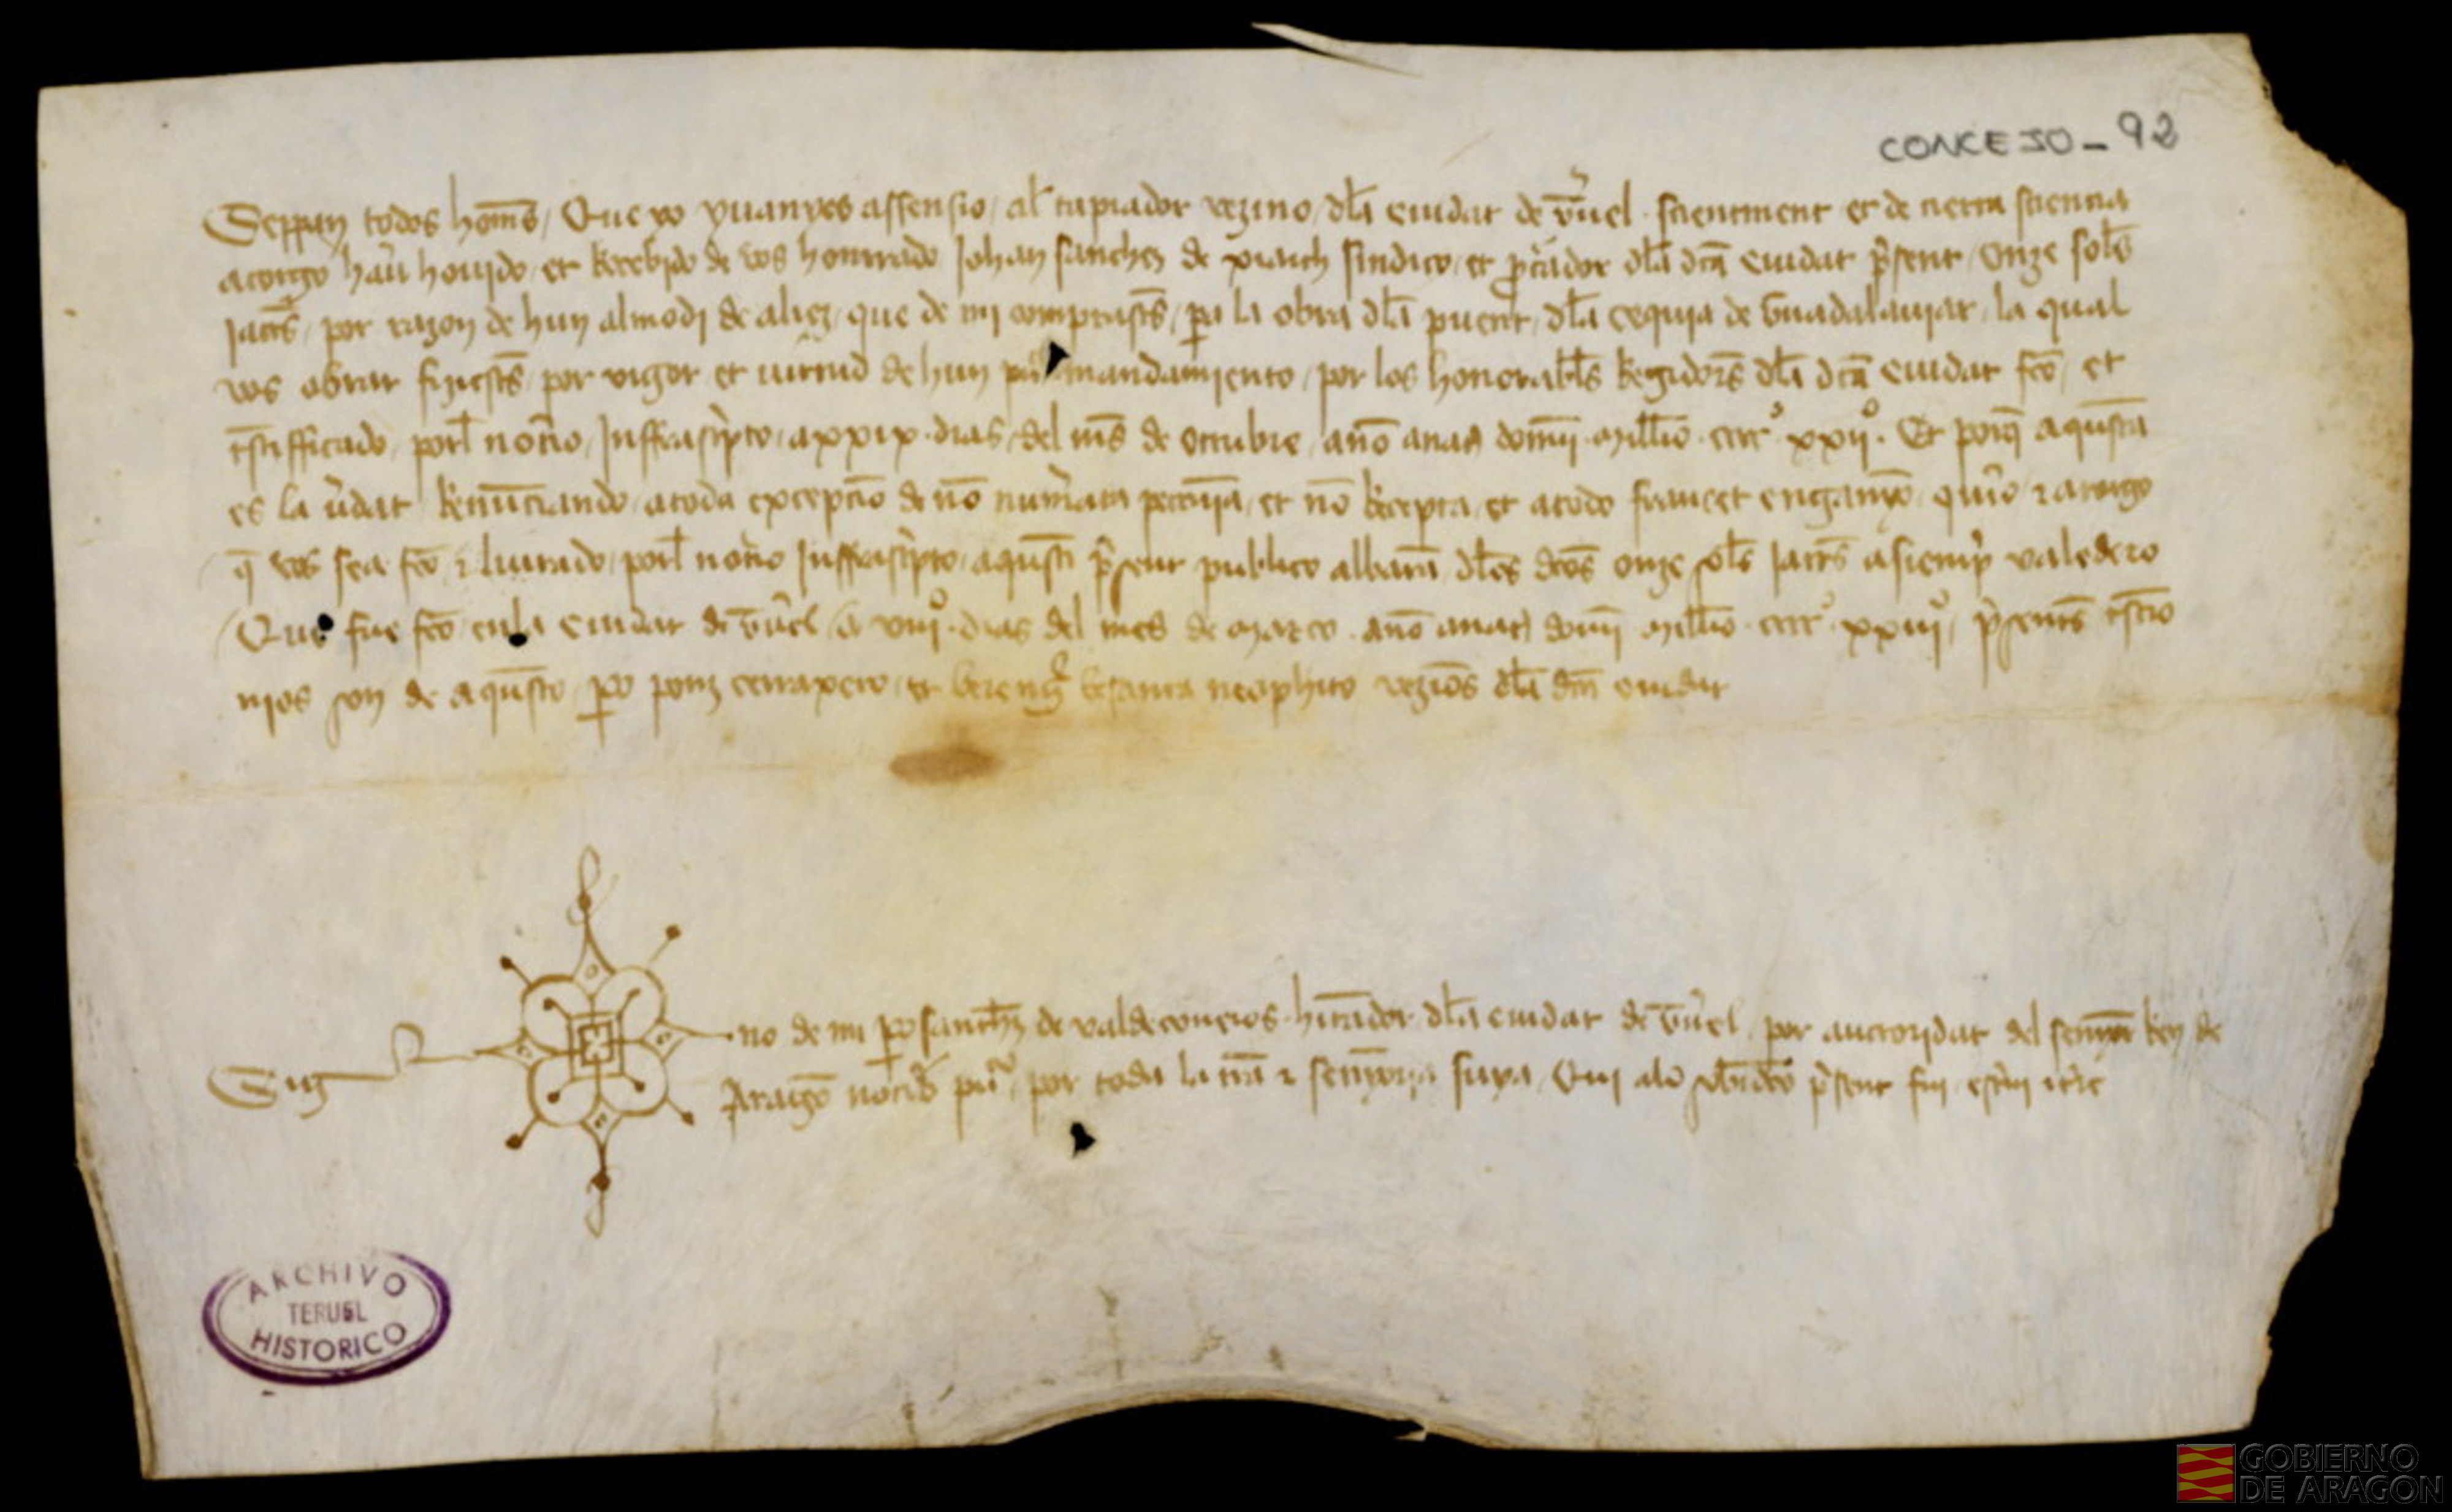 CONCEJO - 92
Seppan todos homs, Que yo yuanyes assensio, al tapiador vezino, dla ciudat de Teruel. scientment et de cierta sciencia
atorgo hauer houido, et Recebido de vos honrrado Johan sanchez de sindico, et procurador dla dca ciudat present, Onze sols
Jaccs, por razon de hun almodi de aliez, que de mi comprastes, pora la obra dla puent, dla cequia de Guadalauiar, la qual
vos obrar fiziestes, por vigor et virtud de hun mandamiento, por los honorables Regidores dla dca ciudat fco, et
testifficado, porel notario, Inffrascripto, a xxix. dias, del mes de Octubre, anno anat domini. Millo. cccc.º xxijº. Et porque aquesta
es la verdat Renunciando, a toda excepcio de non numerata peccunia, et non Recepta, et a todo frau et enganyo, quiero et atorgo
que vos sea fco et liurado, porel notario Inffrascripto, aquesti present publico albaran, dles dcos Onze sols Jaccs a siempre valedero
Que fue fco en la Ciudat de Teruel, a viiiº. dias del mes de Março. anno anat domini Millo. ccccº. xxiijº, presentes testimo
nios son de aquesto, pero ponz cerraxero, et berenguer besanta neophito vezinos dla dca ciudat
Sig no de mi pero sanchez de valdeconexos. habitador dla ciudat de Teruel. por auctoridat del senyor Rey de
Aragon notario publico, por toda la tierra et senyoria suya, Qui alo sobredito present fui escriui
ARCHIVO
TERUEL
HISTORICO
GOBIERNO
DE ARAGON